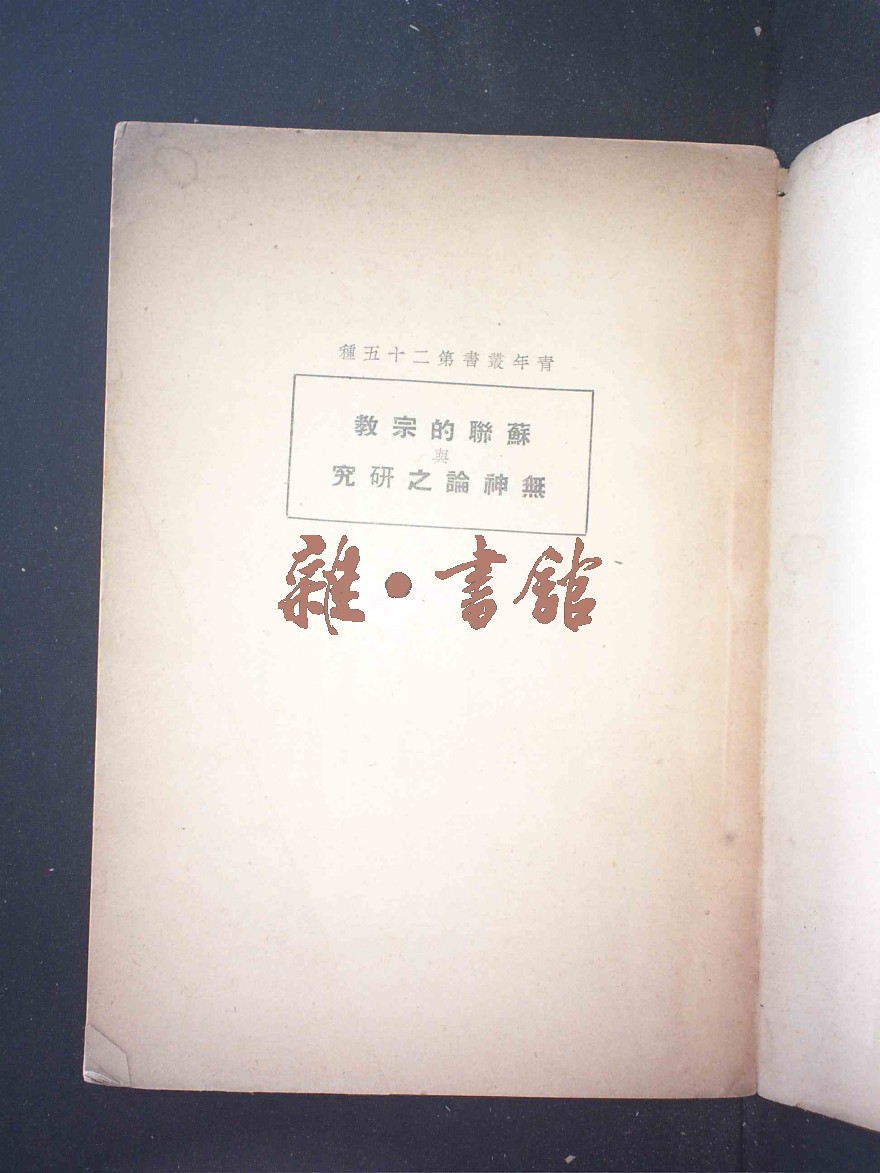 青年叢書第二十五種
蘇聯的宗教
與
無神論之研究
雜·書館